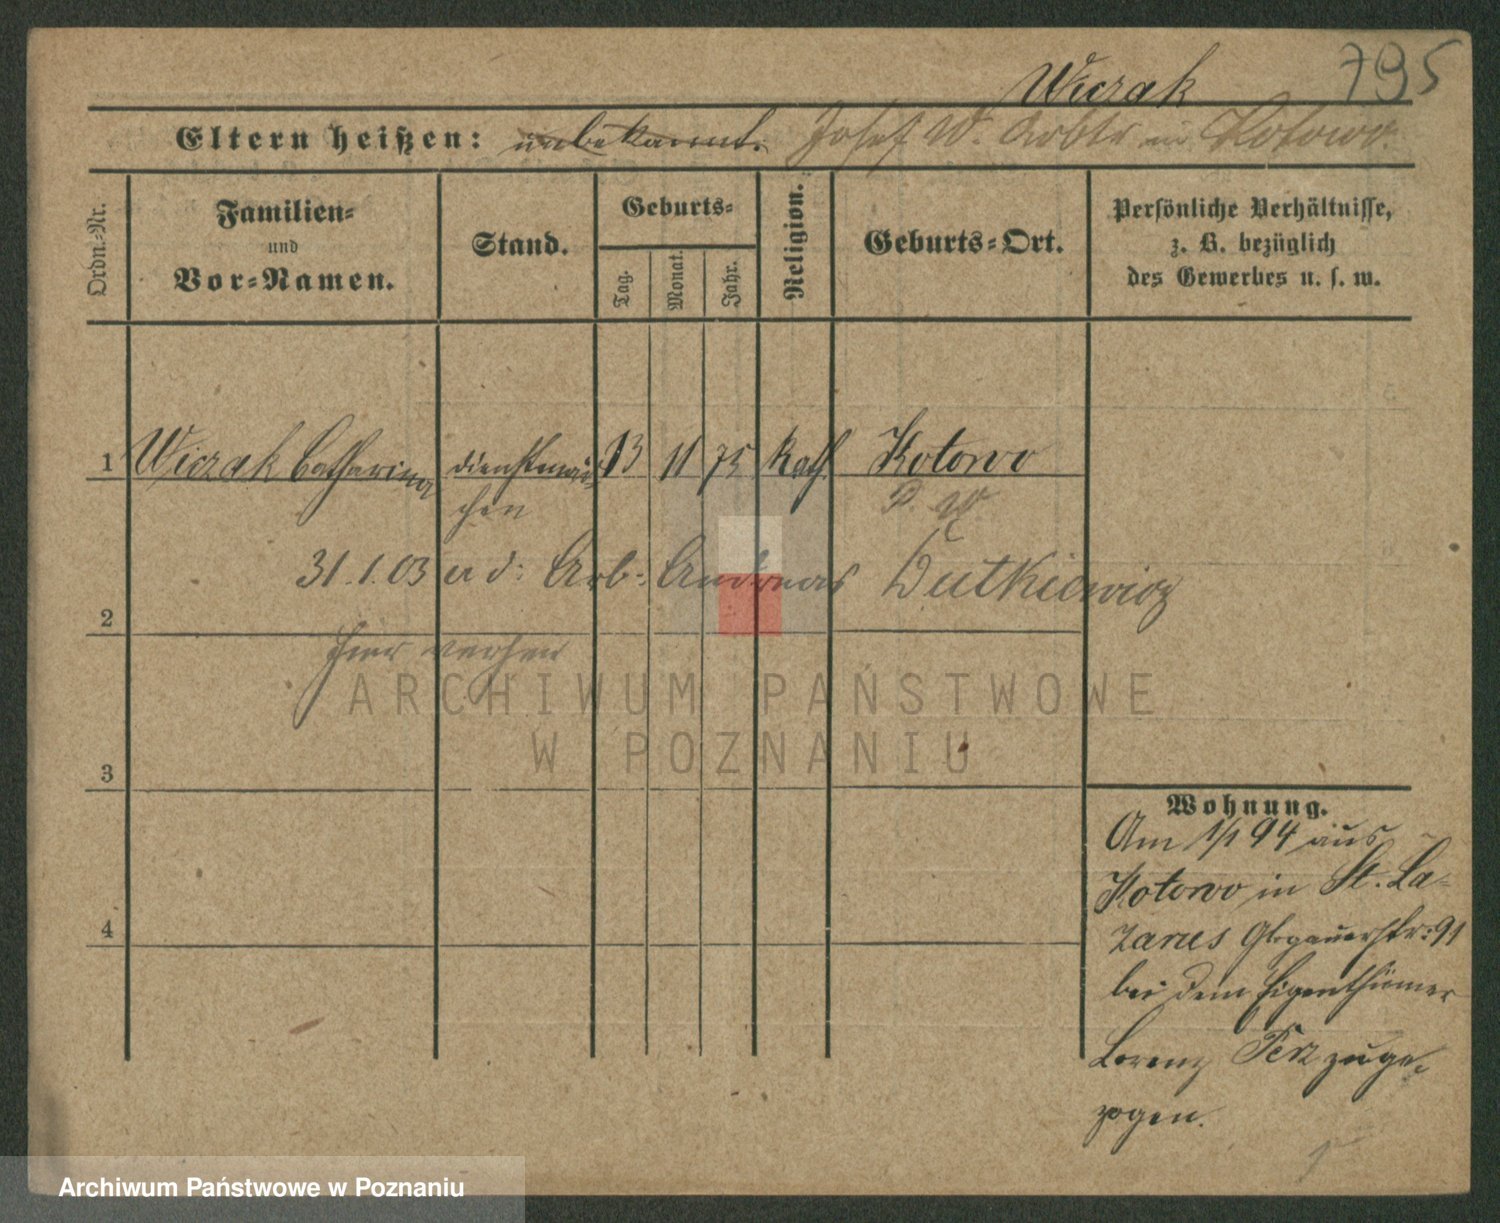 795
Wiczak
Eltern heißen: unbekannt. Josef W. Arbtr in Kotowo.
Ordn.-Nr.
Familien-
und
Vor-Namen.
Stand.
Geburts-
Tag.
Monat.
Jahr.
Religion.
Geburts-Ort.
Persönliche Verhältnisse,
z. B. bezüglich
des Gewerbes u. s. w.
1 Wiczak Catharina dienstmäd- 13 11 75 Kath. Kotowo
chen P. W.
31.1.03 a d: Arb: Andreas Dutkiewicz
2
hier verhen
3
4
Wohnung.
Am 1/1 94 aus
Kotowo in St. La-
zarus Glogauerstr: 91
bei dem Eigenthümer
Lorenz Perz zuge-
zogen.
ARCHIWUM PAŃSTWOWE
W POZNANIU
Archiwum Państwowe w Poznaniu